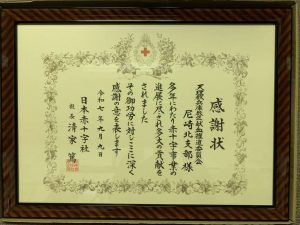 感謝状
天理教兵庫教区献血推進委員会
尼崎北支部 様
多年にわたり赤十字事業の
進展に尽され多大の貢献を
されました
その御功労に対しここに深く
感謝の意を表します
令和七年九月九日
日本赤十字社
社長 清家 篤